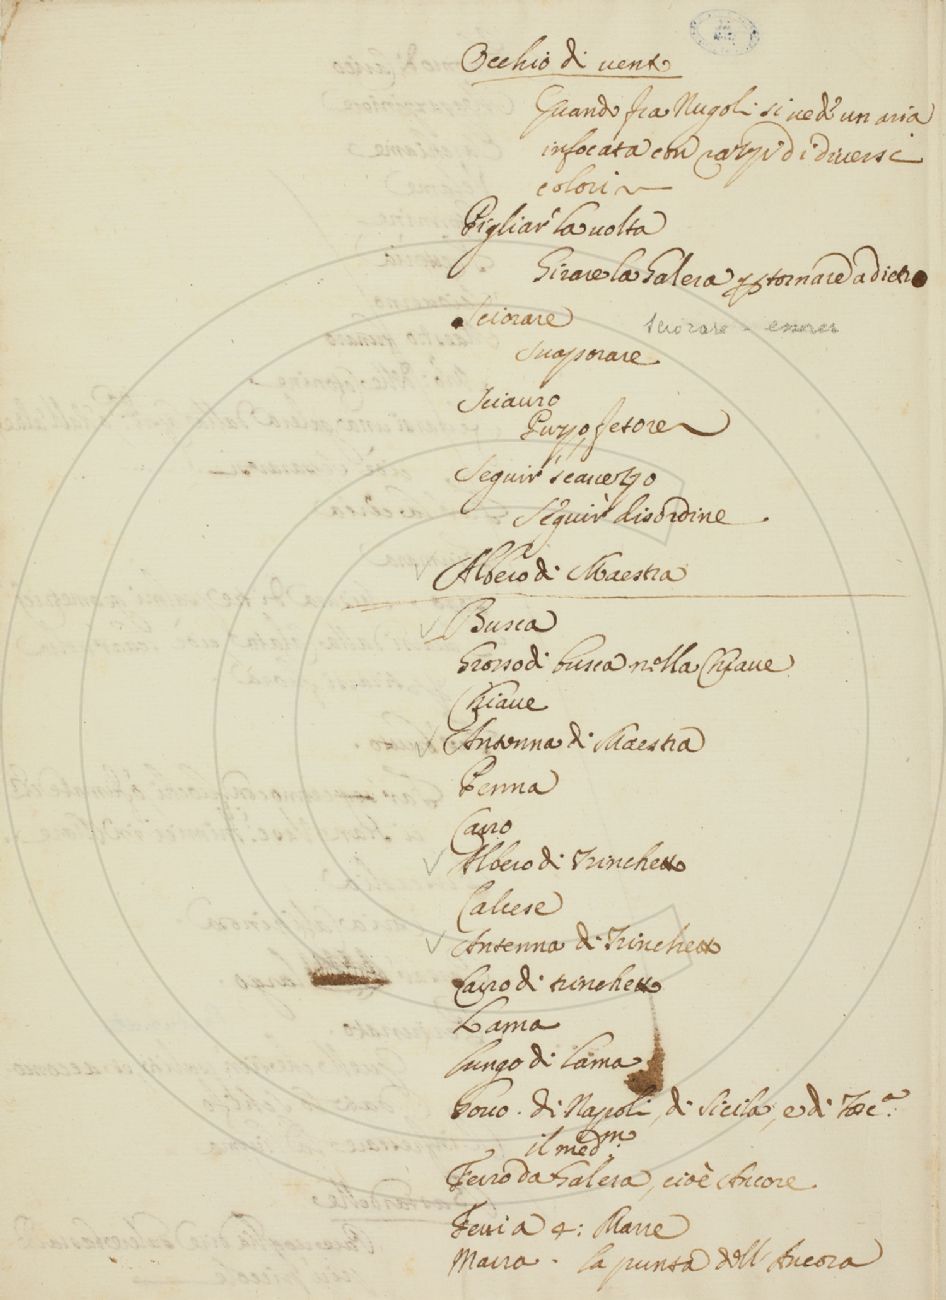 Occhio di vento
Quando fra Nugoli si vede un aria
infocata con di diversi
colori
Pigliar la volta
Girare la Galera per tornare a dietro
Sciorare
Sciorare - error
Svaporare
Sciauro
Puzzo, fetore
Seguir scavezzo
Seguir disordine
Albero di Maestra
Busca
Grosso di busca nella Chiave
Chiave
Antenna di Maestra
Penna
Carro
Albero di Trinchetto
Calcese
Antenna di Trinchetto
Carro di trinchetto
Lama
lungo di Lama
di Napoli, di Sicila, e di
il med.mo
Ferro da Galera, cioè Ancore
Ferri a 4: Marre
Marra - la punta dell'Ancora